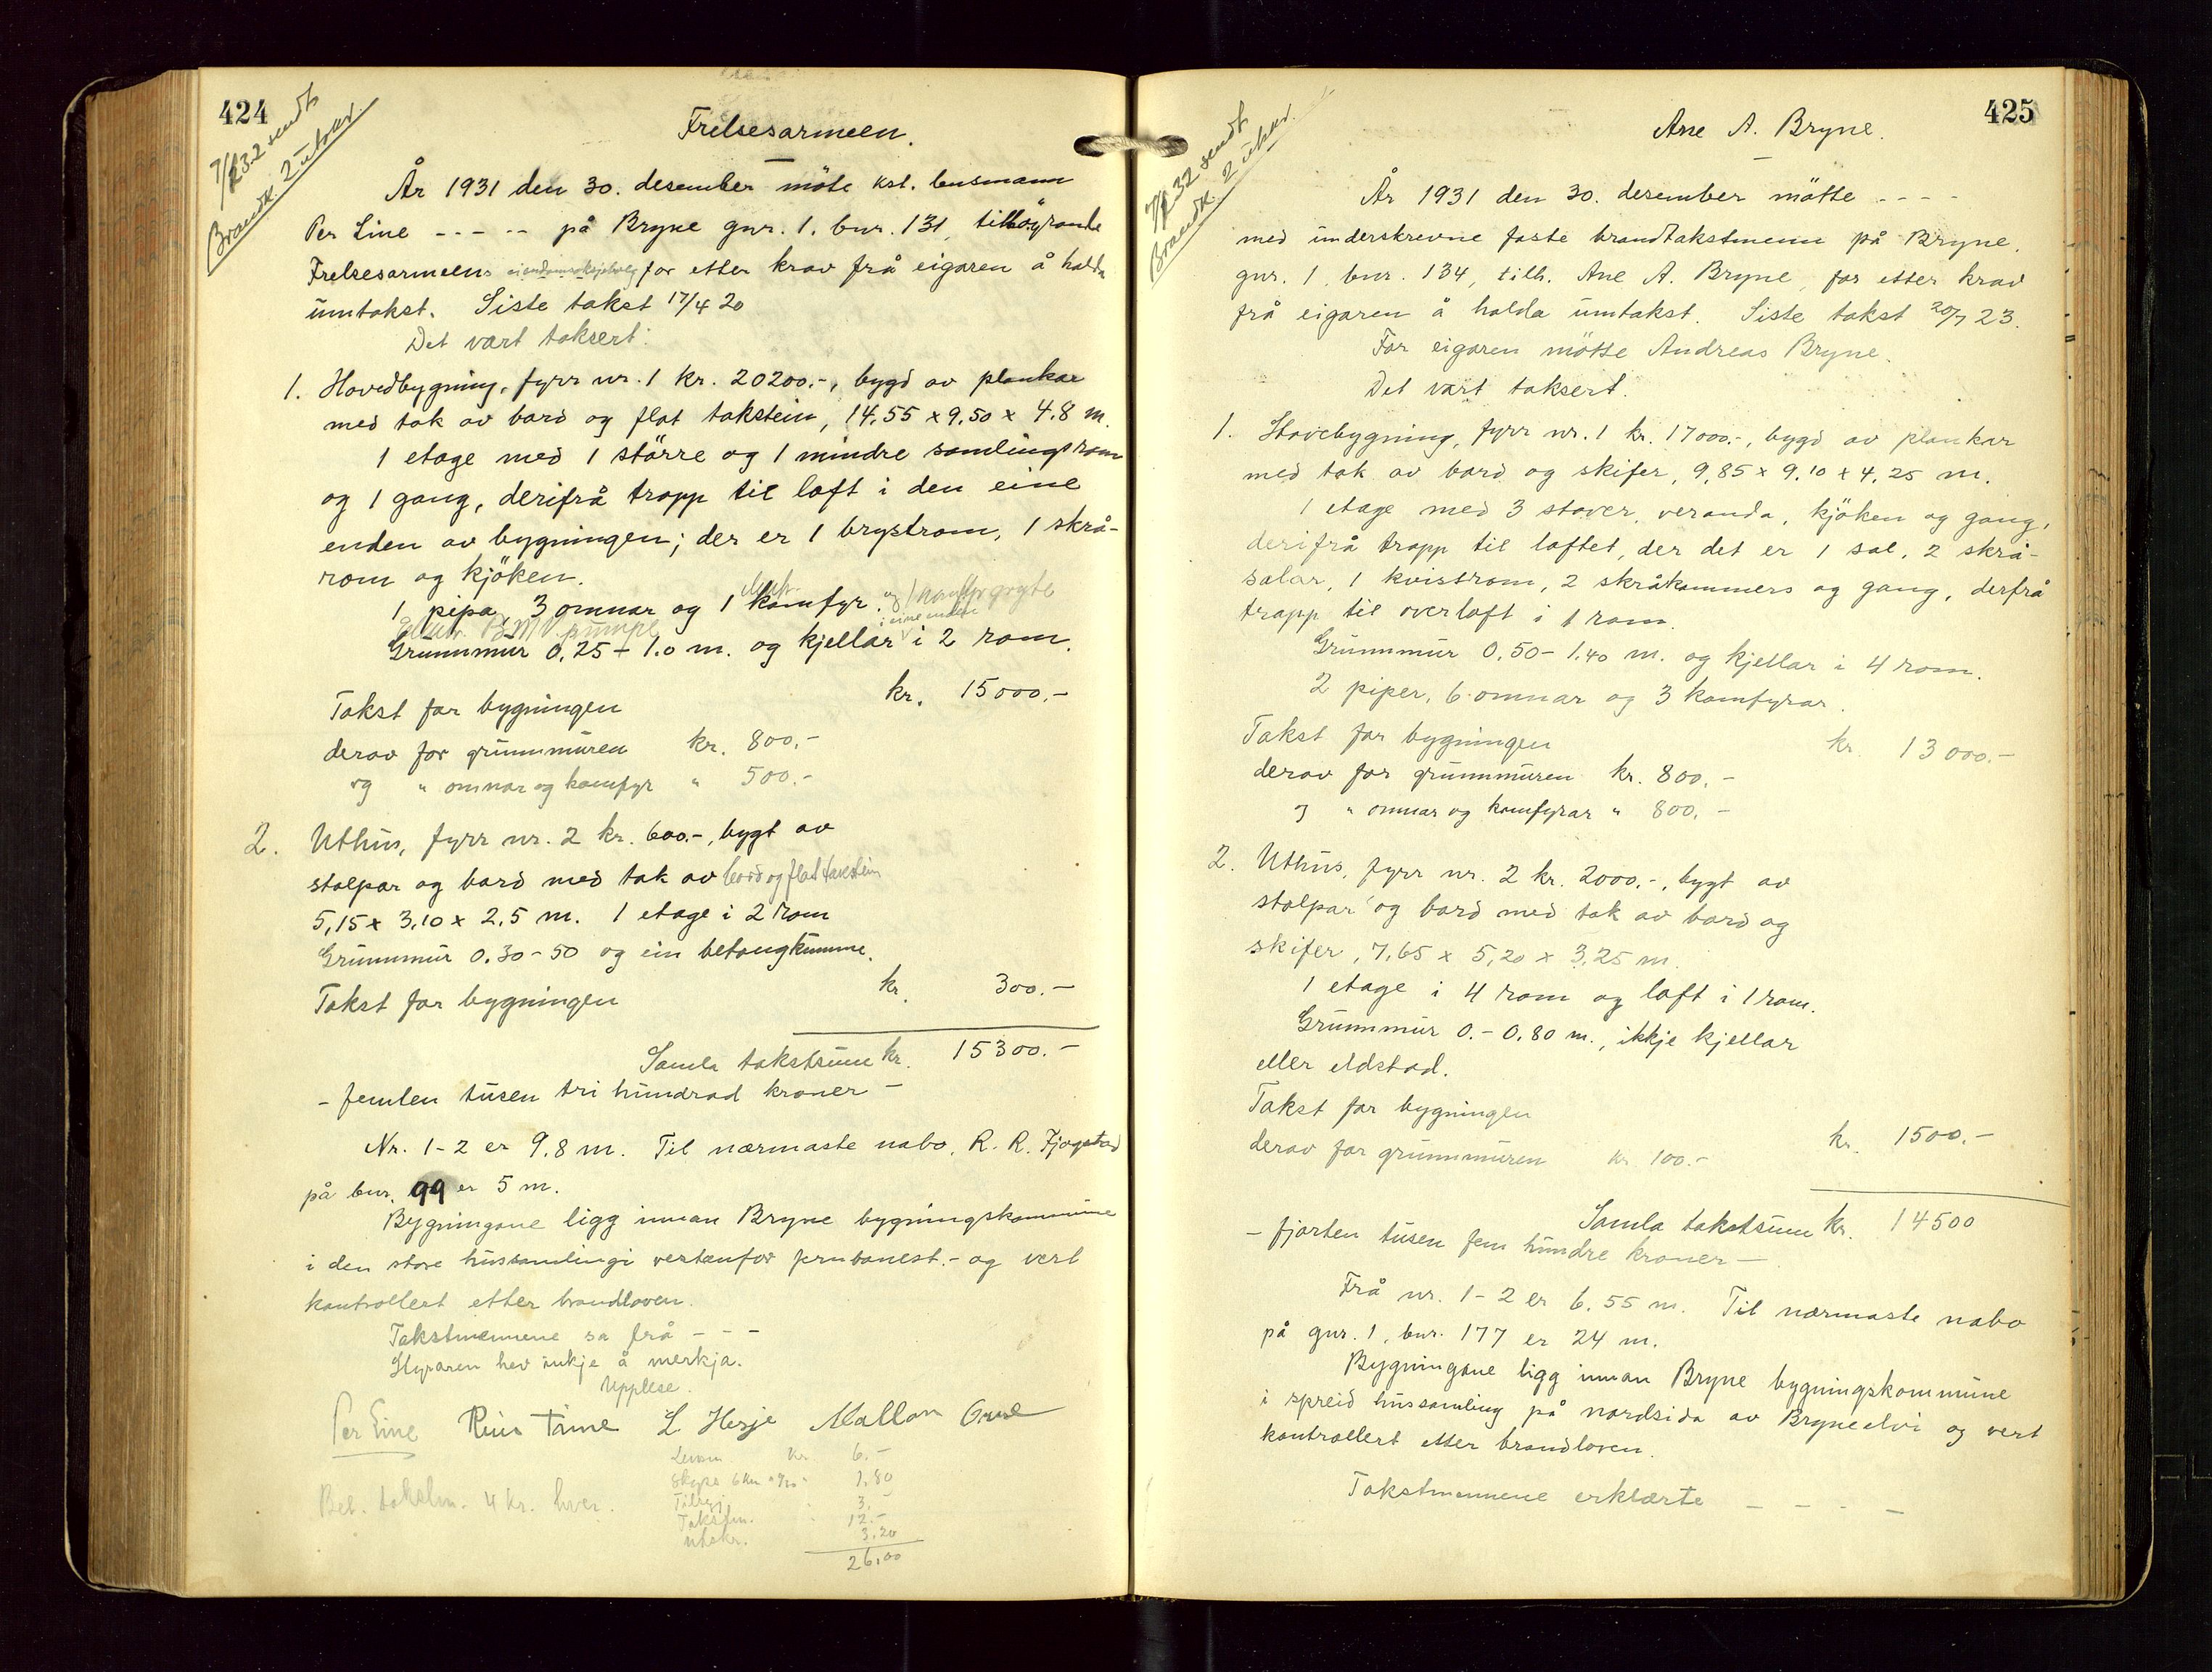 424
7/1 32 sendt
Brandk. 2 utskr.
Frelsesarmeen.
År 1931 den 30. desember möte kst. lensmann
Per Line - - - - - på Bryne gnr. 1, bnr. 131, tilhöyrande
Frelsesarmeens eiendomsselskap for etter krav frå eigaren å halda
umtakst. Siste takst 17/4 20
Det vart taksert:
1. Hovedbygning, fyrr nr. 1 kr. 20200.-, bygd av plankar
med tak av bord og flat takstein, 14,55 x 9,50 x 4.8 m.
1 etage med 1 större og 1 mindre samlingsrom
og 1 gang, derifrå trapp til loft i den eine
enden av bygningen; der er 1 brystrom, 1 skrå-
rom og kjöken.
1 pipa, 3 omnar og 1 komfyr. og 1
pumpe i eine enden
Grunnmur 0,25 - 1.0 m. og kjellar i 2 rom.
Takst for bygningen kr. 15000,-
derav for grunnmuren kr. 800,-
og " omnar og komfyr " 500.-
2. Uthus, fyrr nr. 2 kr. 600.-, bygt av
stolpar og bord med tak av bord og flat takstein
5,15 x 3,10 x 2,5 m. 1 etage i 2 rom
Grunnmur 0.30-50 og ein betongkumme.
Takst for bygningen kr. 300.-
Samla takstsum kr. 15300.-
- femten tusen tri hundrad kroner -
Nr. 1-2 er 9.8 m. Til nærmaste nabo, R. R. Fjogstad
på bnr. 99 er 5 m.
Bygningane ligg innan Bryne bygningskommune
i den store hussamlingi vestanfor jernbanest.- og vert
kontrollert etter brandloven.
Takstmennene sa frå - - -
Styraren hev inkje å merkja.
Upplese.
Per Line Reius Time L. Hesje
Lensm kr 6.-
Skyss 6 km 1,80
3.-
Takstm. 12.-
Utskr. 3.20
26,00
Bet. takstm. 4 kr. hver.
425
7/1 32 sendt
Brandk. 2 utskr.
Ane A. Bryne.
År 1931 den 30. desember mötte - - - -
med underskrevne faste brandtakstmenn på Bryne,
gnr. 1, bnr. 134, tilh. Ane A. Bryne, for etter krav
frå eigaren å halda umtakst. Siste takst 20/7 23.
For eigaren mötte Andreas Bryne.
Det vart taksert.
1. Stovebygning, fyrr nr. 1 kr. 17000.-, bygd av plankar
med tak av bord og skifer, 9,85 x 9,10 x 4,25 m.
1 etage med 3 stover, veranda, kjöken og gang,
derifrå trapp til loftet, der det er 1 sal, 2 skrå-
salar, 1 kvistrom, 2 skråkammers og gang, derfrå
trapp til overloft i 1 rom.
Grunnmur 0,50 - 1,40 m. og kjellar i 4 rom.
2 piper, 6 omnar og 3 komfyrar.
Takst for bygningen kr 13000.-
derav for grunnmuren kr. 800,-
og " omnar og komfyrar " 800,-
2. Uthus, fyrr nr. 2 kr. 2000.-, bygt av
stolpar og bord med tak av bord og
skifer, 7,65 x 5,20 x 3,25 m.
1 etage i 4 rom og loft i 1 rom.
Grunnmur 0.- 0.80 m., ikkje kjellar
eller eldstad.
Takst for bygningen kr. 1500.-
derav for grunnmuren kr 100.-
Samla takstsum kr. 14500
- fjorten tusen fem hundre kroner -
Frå nr. 1-2 er 6.55 m. Til nærmaste nabo
på gnr. 1, bnr. 177 er 24 m.
Bygningane ligg innan Bryne bygningskommune
i spreid hussamling på nordsida av Bryneelvi og vert
kontrollert etter brandloven.
Takstmennene erklærte - - - -